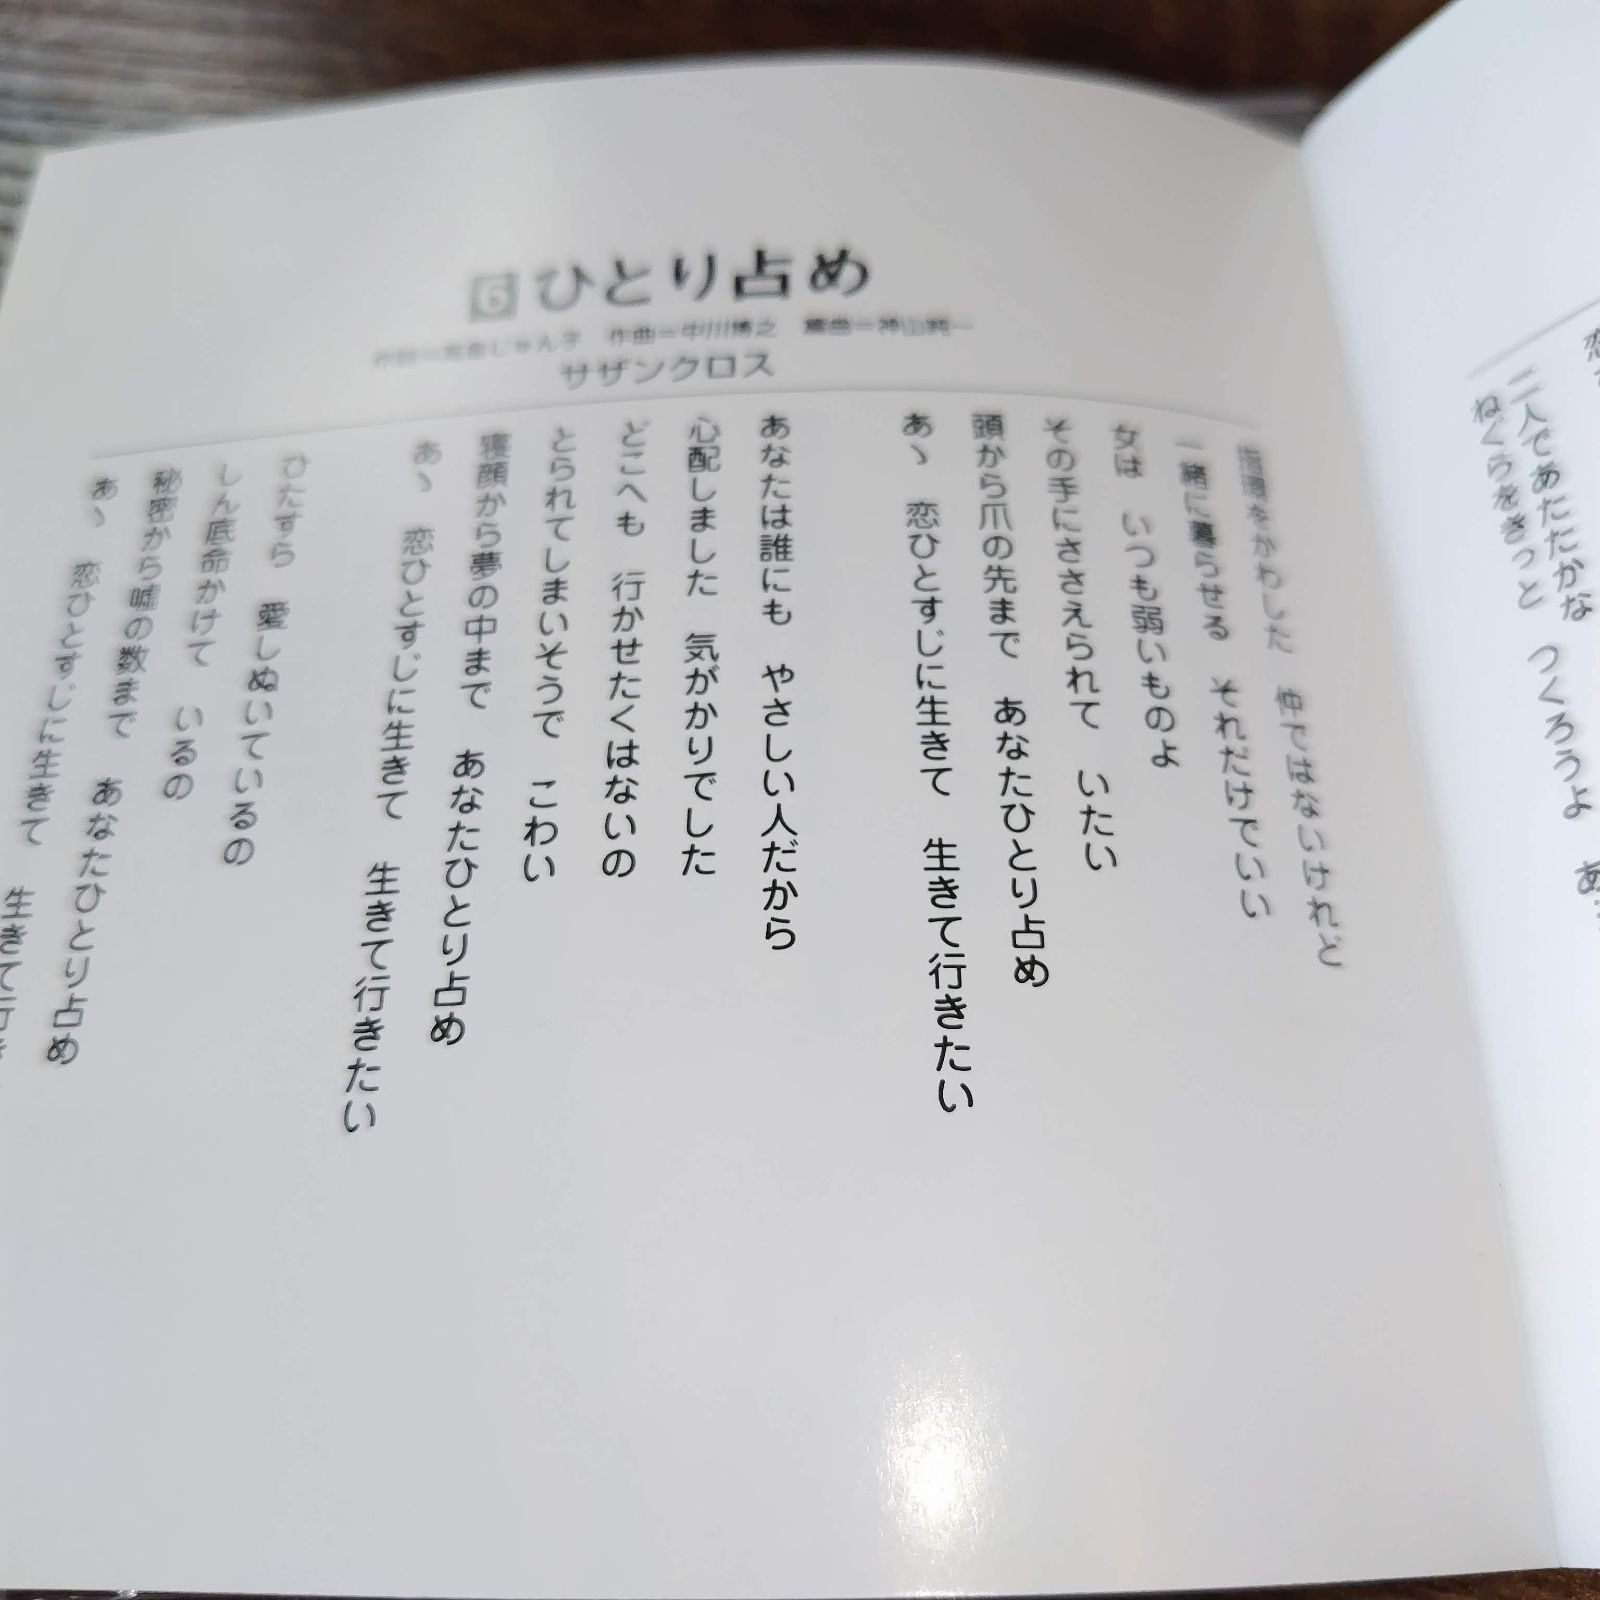 6 ひとり占め
作曲=中川博之
サザンクロス
指環をかわした 仲ではないけれど
一緒に暮らせる それだけでいい
女は いつも弱いものよ
その手にささえられて いたい
頭から爪の先まで あなたひとり占め
あゝ 恋ひとすじに生きて 生きて行きたい
あなたは誰にも やさしい人だから
心配しました 気がかりでした
どこへも 行かせたくはないの
とられてしまいそうで こわい
寝顔から夢の中まで あなたひとり占め
あゝ 恋ひとすじに生きて 生きて行きたい
ひたすら 愛しぬいているの
しん底命かけて いるの
秘密から嘘の数まで あなたひとり占め
あゝ 恋ひとすじに生きて 生きて行き
二人であたたかな
ねぐらをきっと つくろうよ あ